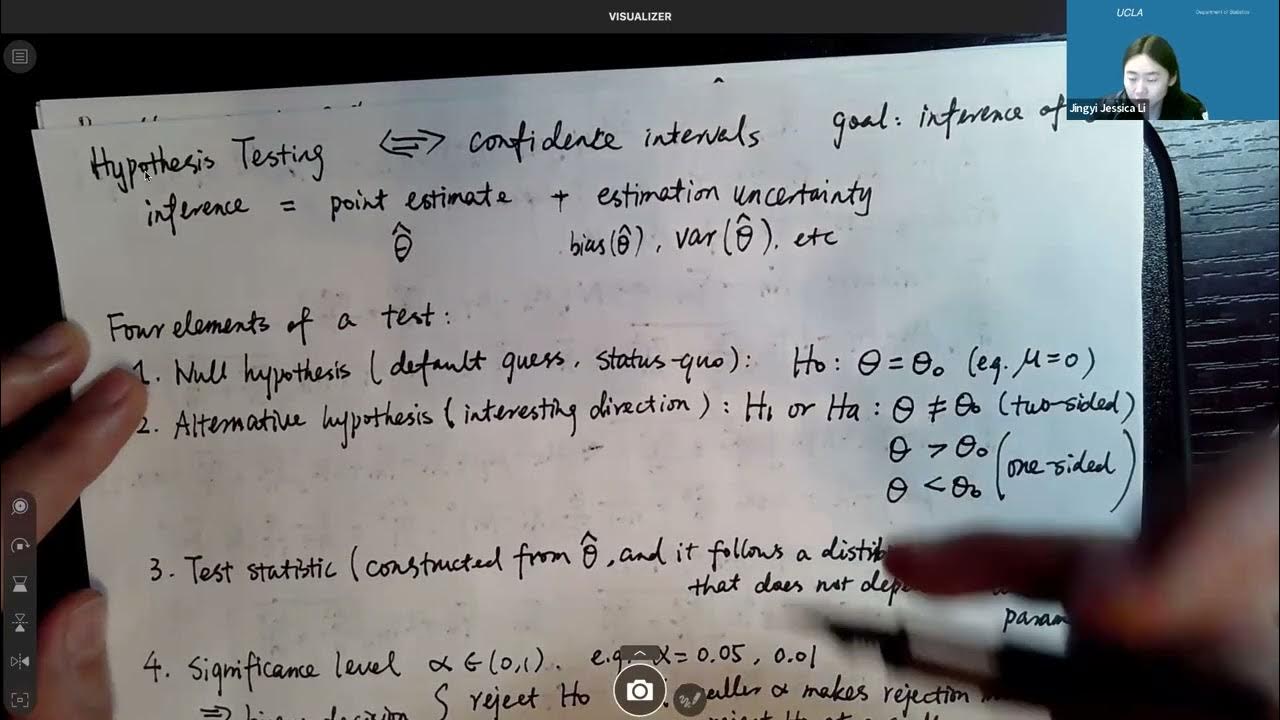 VISUALIZER
UCLA
Department of Statistics
Jingyi Jessica Li
Hypothesis Testing ⟺ confidence intervals goal: inference of
inference = point estimate + estimation uncertainty
θ̂ bias(θ̂), var(θ̂). etc
Four elements of a test:
1. Null hypothesis (default guess, status-quo): Ho: θ = θo (eg. μ=0)
2. Alternative hypothesis (interesting direction): H1 or Ha: θ ≠ θo (two-sided)
θ > θo
(one-sided)
θ < θo
3. Test statistic (constructed from θ̂, and it follows a
that does not
4. Significance level α ∈ (0,1). e.g. α = 0.05, 0.01
⇒ decision { reject Ho α makes rejection